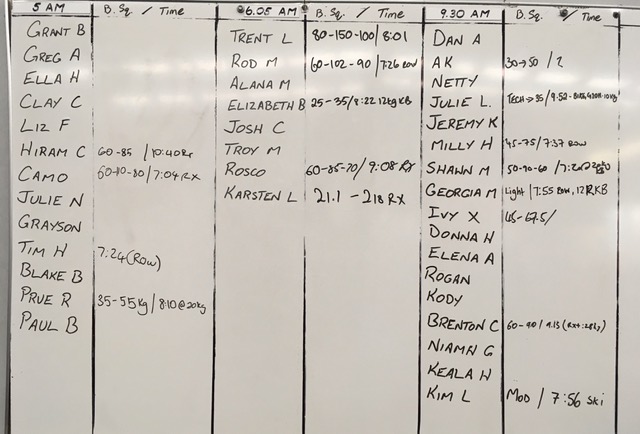 5 AM B. Sq. / Time
GRANT B
GREG A
ELLA H
CLAY C
LIZ F
HIRAM C 60-85 / 10:40 Rx
CAMO / 7:04 RX
JULIE N
GRAYSON
TIM H 7:24 (ROW)
BLAKE B
PRUE R 35-55kg / 8:10 @ 20kg
PAUL B
6.05 AM B. Sq. / Time
TRENT L 80-150-100 / 8:01
ROD M 60-102-90 / 7:26 ROW
ALANA M
ELIZABETH B 25-35 / 8:22 12kg KB
JOSH C
TROY M
ROSCO 60-85-70 / 9:08 RX
KARSTEN L 21.1 - 218 RX
9.30 AM B. Sq. / Time
DAN A
AK 30→50 / 2
NETTY
JULIE L. TECH → 35 / 9:52
JEREMY K
MILLY H 45-75 / 7:37 ROW
SHAWN M 50-90-60
GEORGIA M Light / 7:55 ROW, 12 KB
IVY X 45-67.5/
DONNA H
ELENA A
ROGAN
KODY
BRENTON C 60-90 / 9.15 (RX+:28kg)
NIAMH G
KEALA H
KIM L MOD / 7:56 SKI